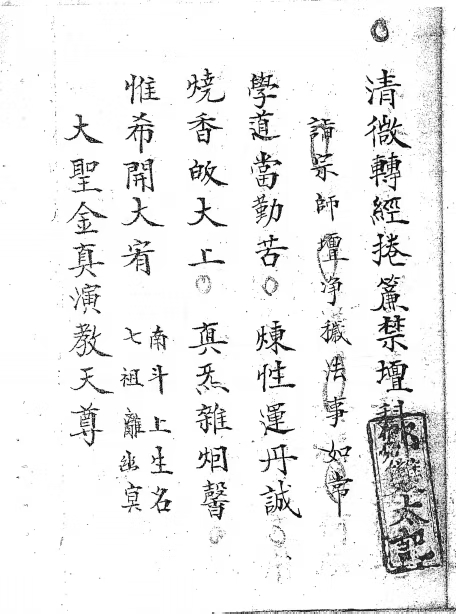 清微轉經捲簾禁壇科
詣宗師壇淨穢法事如常
學道當勤苦 煉性運丹誠
燒香皈大上 真炁雜烟馨
惟希開大宥 南斗上生名
七祖離幽冥
大聖金真演教天尊